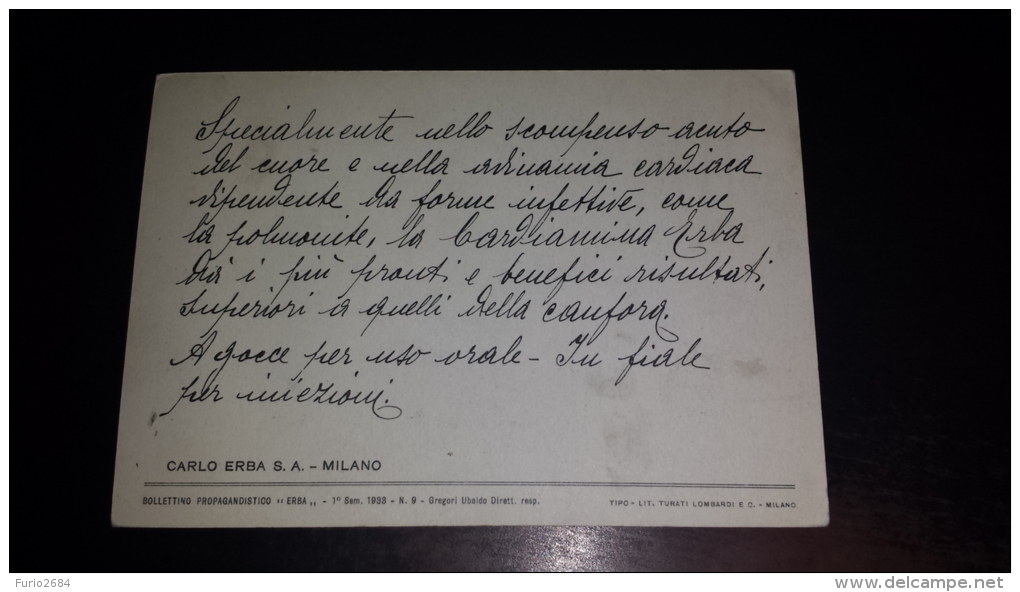 Specialmente nello scompenso acuto
del cuore e nella adinamia cardiaca
dipendente da forme infettive, come
la polmonite, la Cardiamina Erba
dà i più pronti e benefici risultati,
superiori a quelli della canfora.
A gocce per uso orale - In fiale
per iniezioni.
CARLO ERBA S. A. - MILANO
BOLLETTINO PROPAGANDISTICO “ ERBA „ - 1º Sem. 1938 - N. 9 - Gregori Ubaldo Dirett. resp.
TIPO - LIT. TURATI LOMBARDI E C. - MILANO
Furio2684
www.delcampe.net